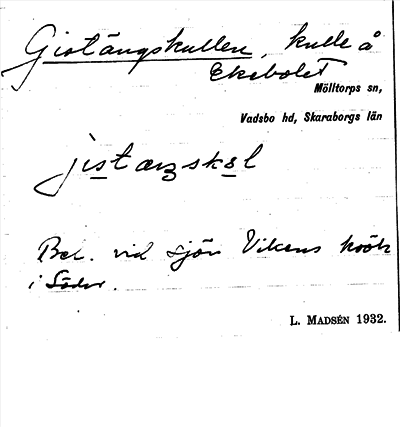 Gistängskullen, kulle å
Ekebolet
Mölltorps sn,
Vadsbo hd, Skaraborgs län
jistæŋskəl
Bel. vid sjön Vikens krök
i Söder.
L. MADSÉN 1932.